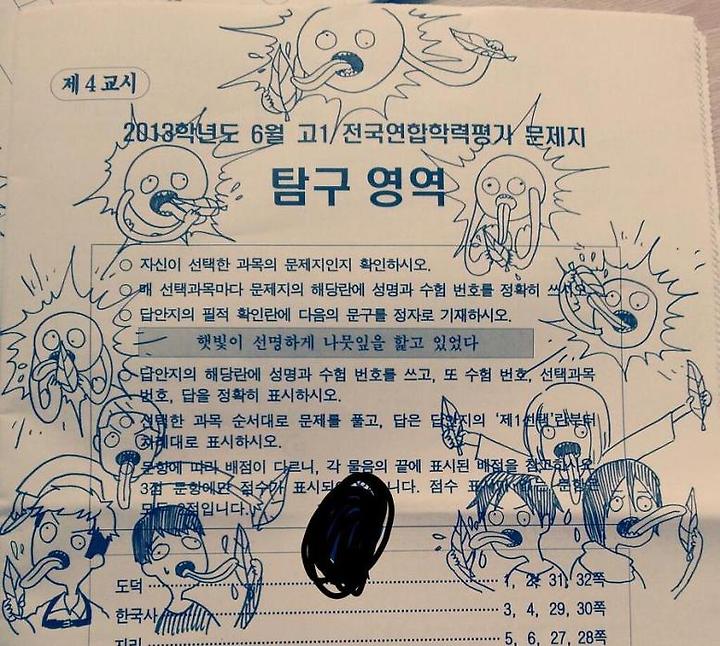 제 4 교시
2013학년도 6월 고1 전국연합학력평가 문제지
탐구 영역
○ 자신이 선택한 과목의 문제지인지 확인하시오.
○ 매 선택과목마다 문제지의 해당란에 성명과 수험 번호를 정확히 쓰시오.
○ 답안지의 필적 확인란에 다음의 문구를 정자로 기재하시오.
햇빛이 선명하게 나뭇잎을 핥고 있었다
○ 답안지의 해당란에 성명과 수험 번호를 쓰고, 또 수험 번호, 선택과목
번호, 답을 정확히 표시하시오.
선택한 과목 순서대로 문제를 풀고, 답은 답안지의 ‘제1선택’란부터
차례대로 표시하시오.
문항에 따라 배점이 다르니, 각 물음의 끝에 표시된 배점을 참고하시오.
3점 문항에만 점수가 표시되 니다. 점수 표 문항은
2점입니다.
도덕 1, 2, 31, 32쪽
한국사 3, 4, 29, 30쪽
지리 5, 6, 27, 28쪽